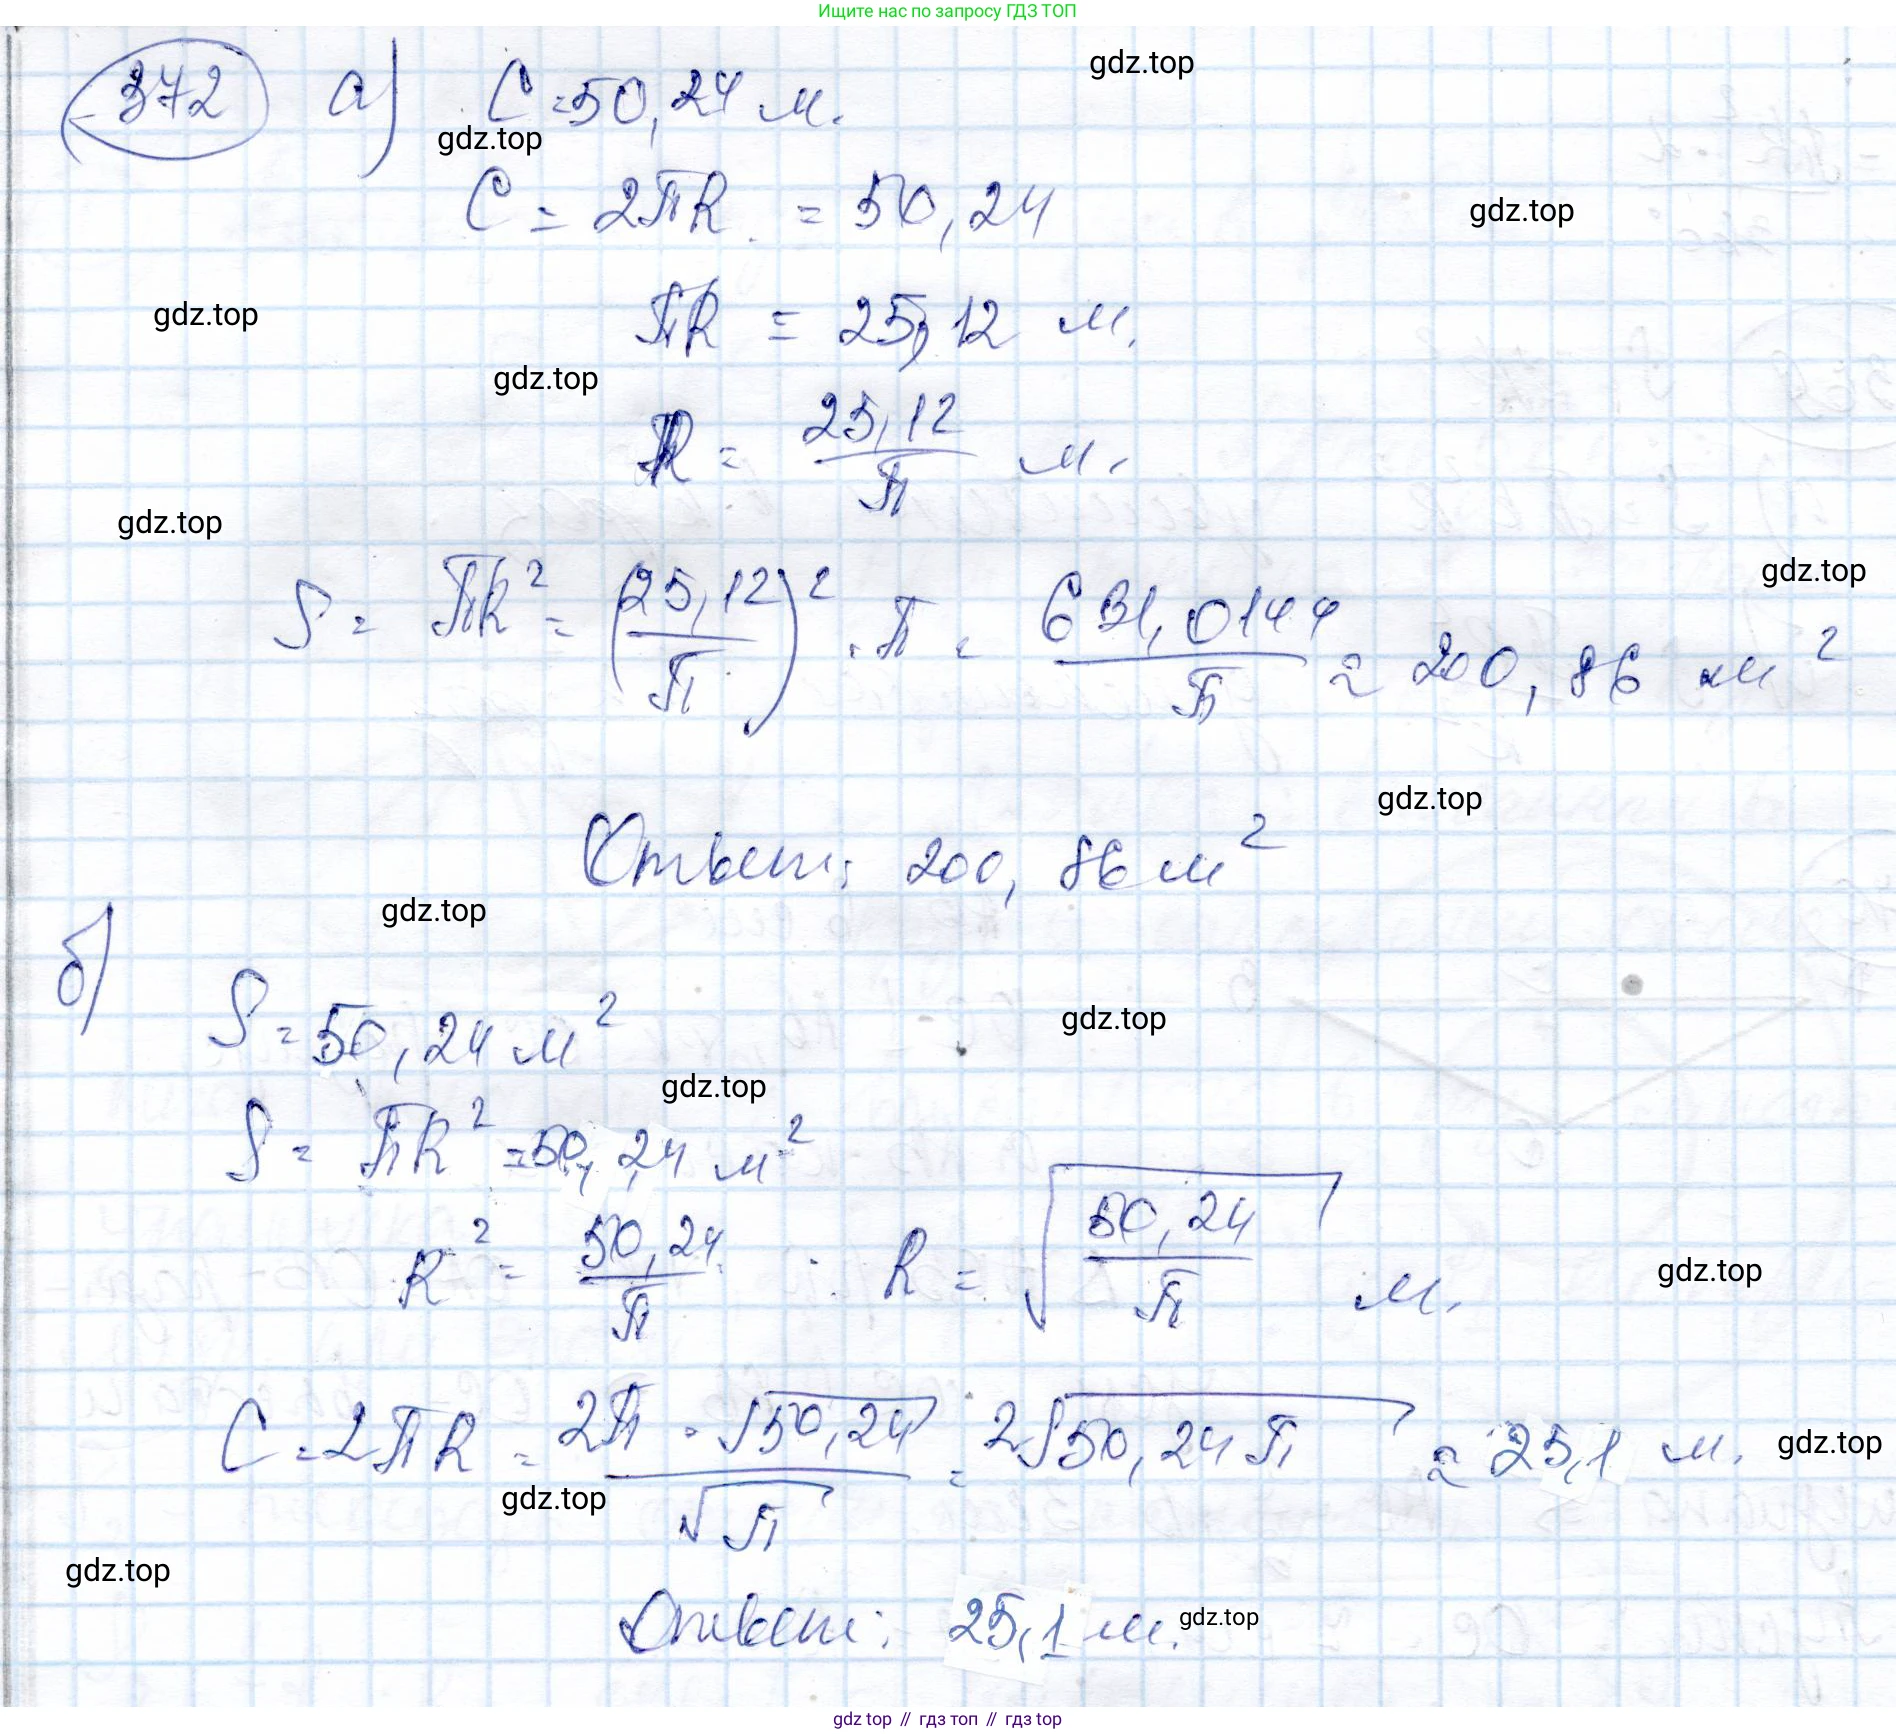 Ищите нас по запросу ГДЗ ТОП
372 а) C = 50,24 м.
gdz.top
gdz.top
C = 2πR = 50,24
gdz.top
πR = 25,12 м.
gdz.top
gdz.top
R = 25,12/π м.
gdz.top
gdz.top
S = πR² = (25,12/π)² · π = 631,0144/π ≈ 200,86 м²
gdz.top
Ответ: 200,86 м²
gdz.top
б)
S = 50,24 м²
gdz.top
gdz.top
S = πR² = 50,24 м²
R² = 50,24/π R = √(50,24/π) м.
gdz.top
C = 2πR = 2π · √50,24/√π = 2√(50,24π) ≈ 25,1 м.
gdz.top
gdz.top
gdz.top
Ответ: 25,1 м.
gdz.top
gdz top // гдз топ // гдз top